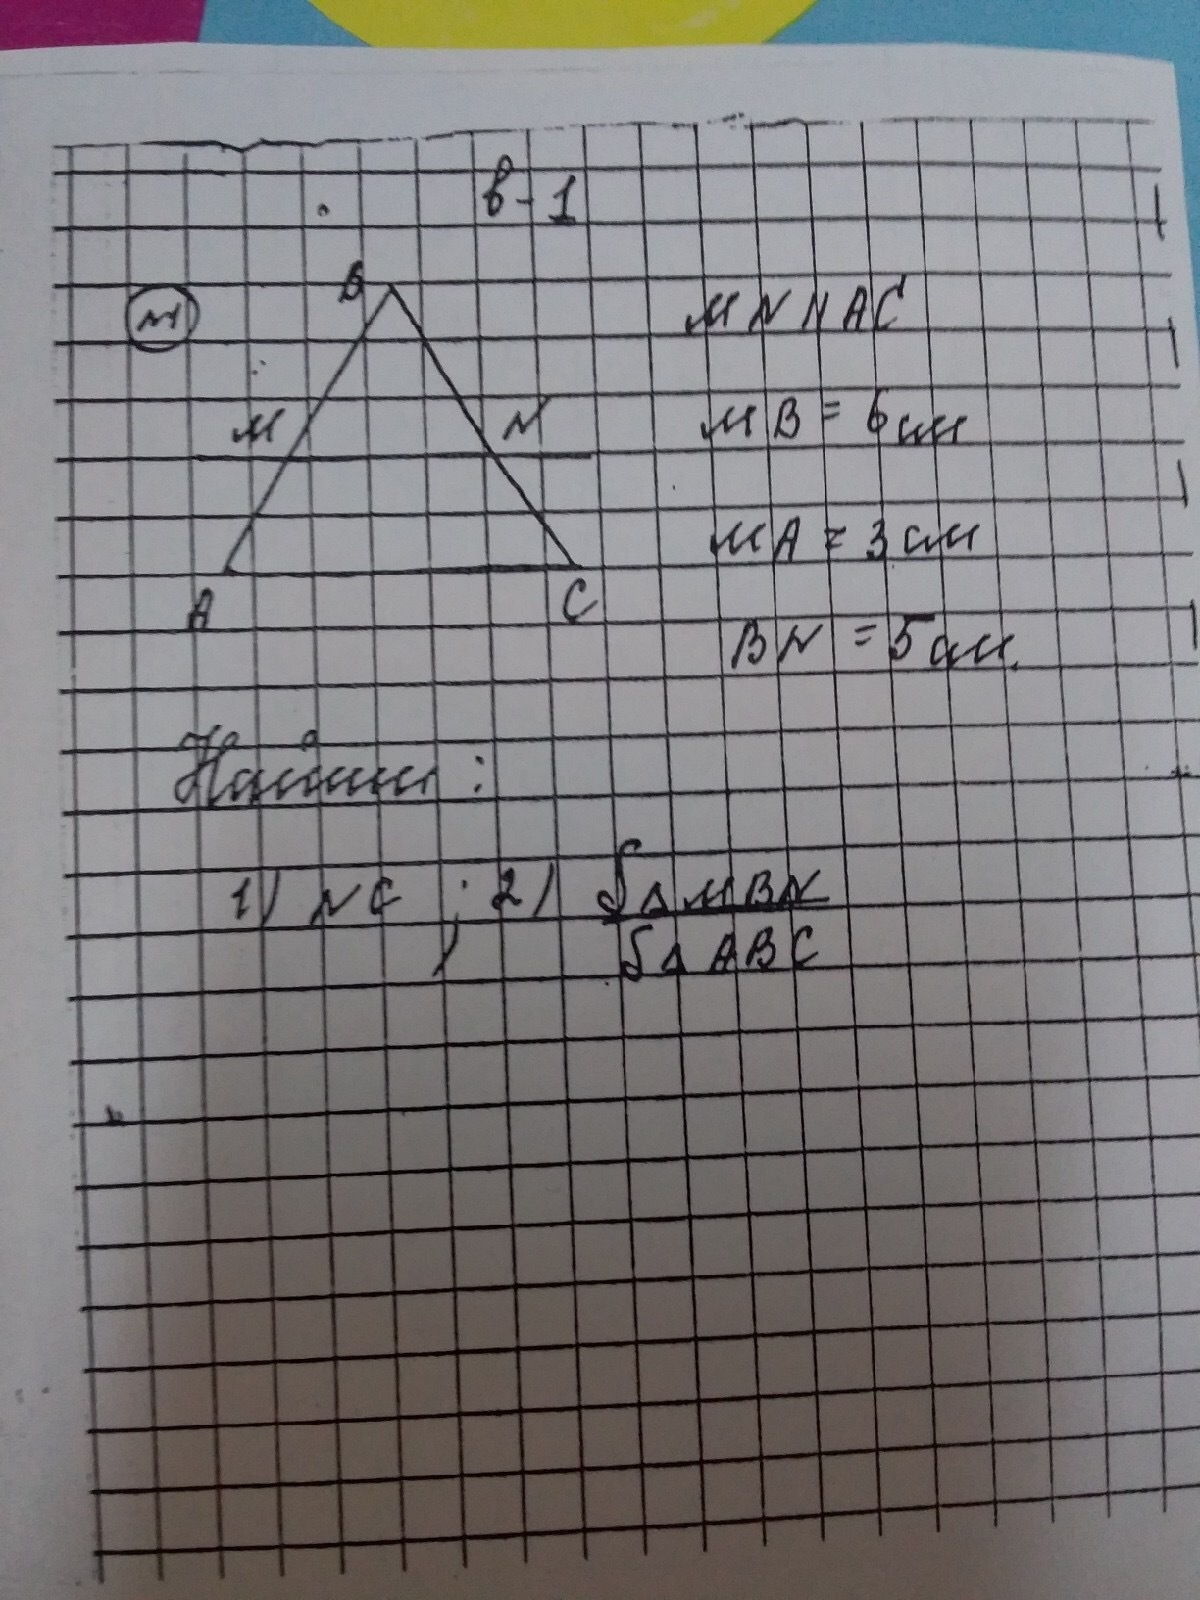 в-1
№1
B
M N
A C
MN || AC
MB = 6 см
MA = 3 см
BN = 5 см.
Найти:
1) NC ; 2) S△MBN
S△ABC